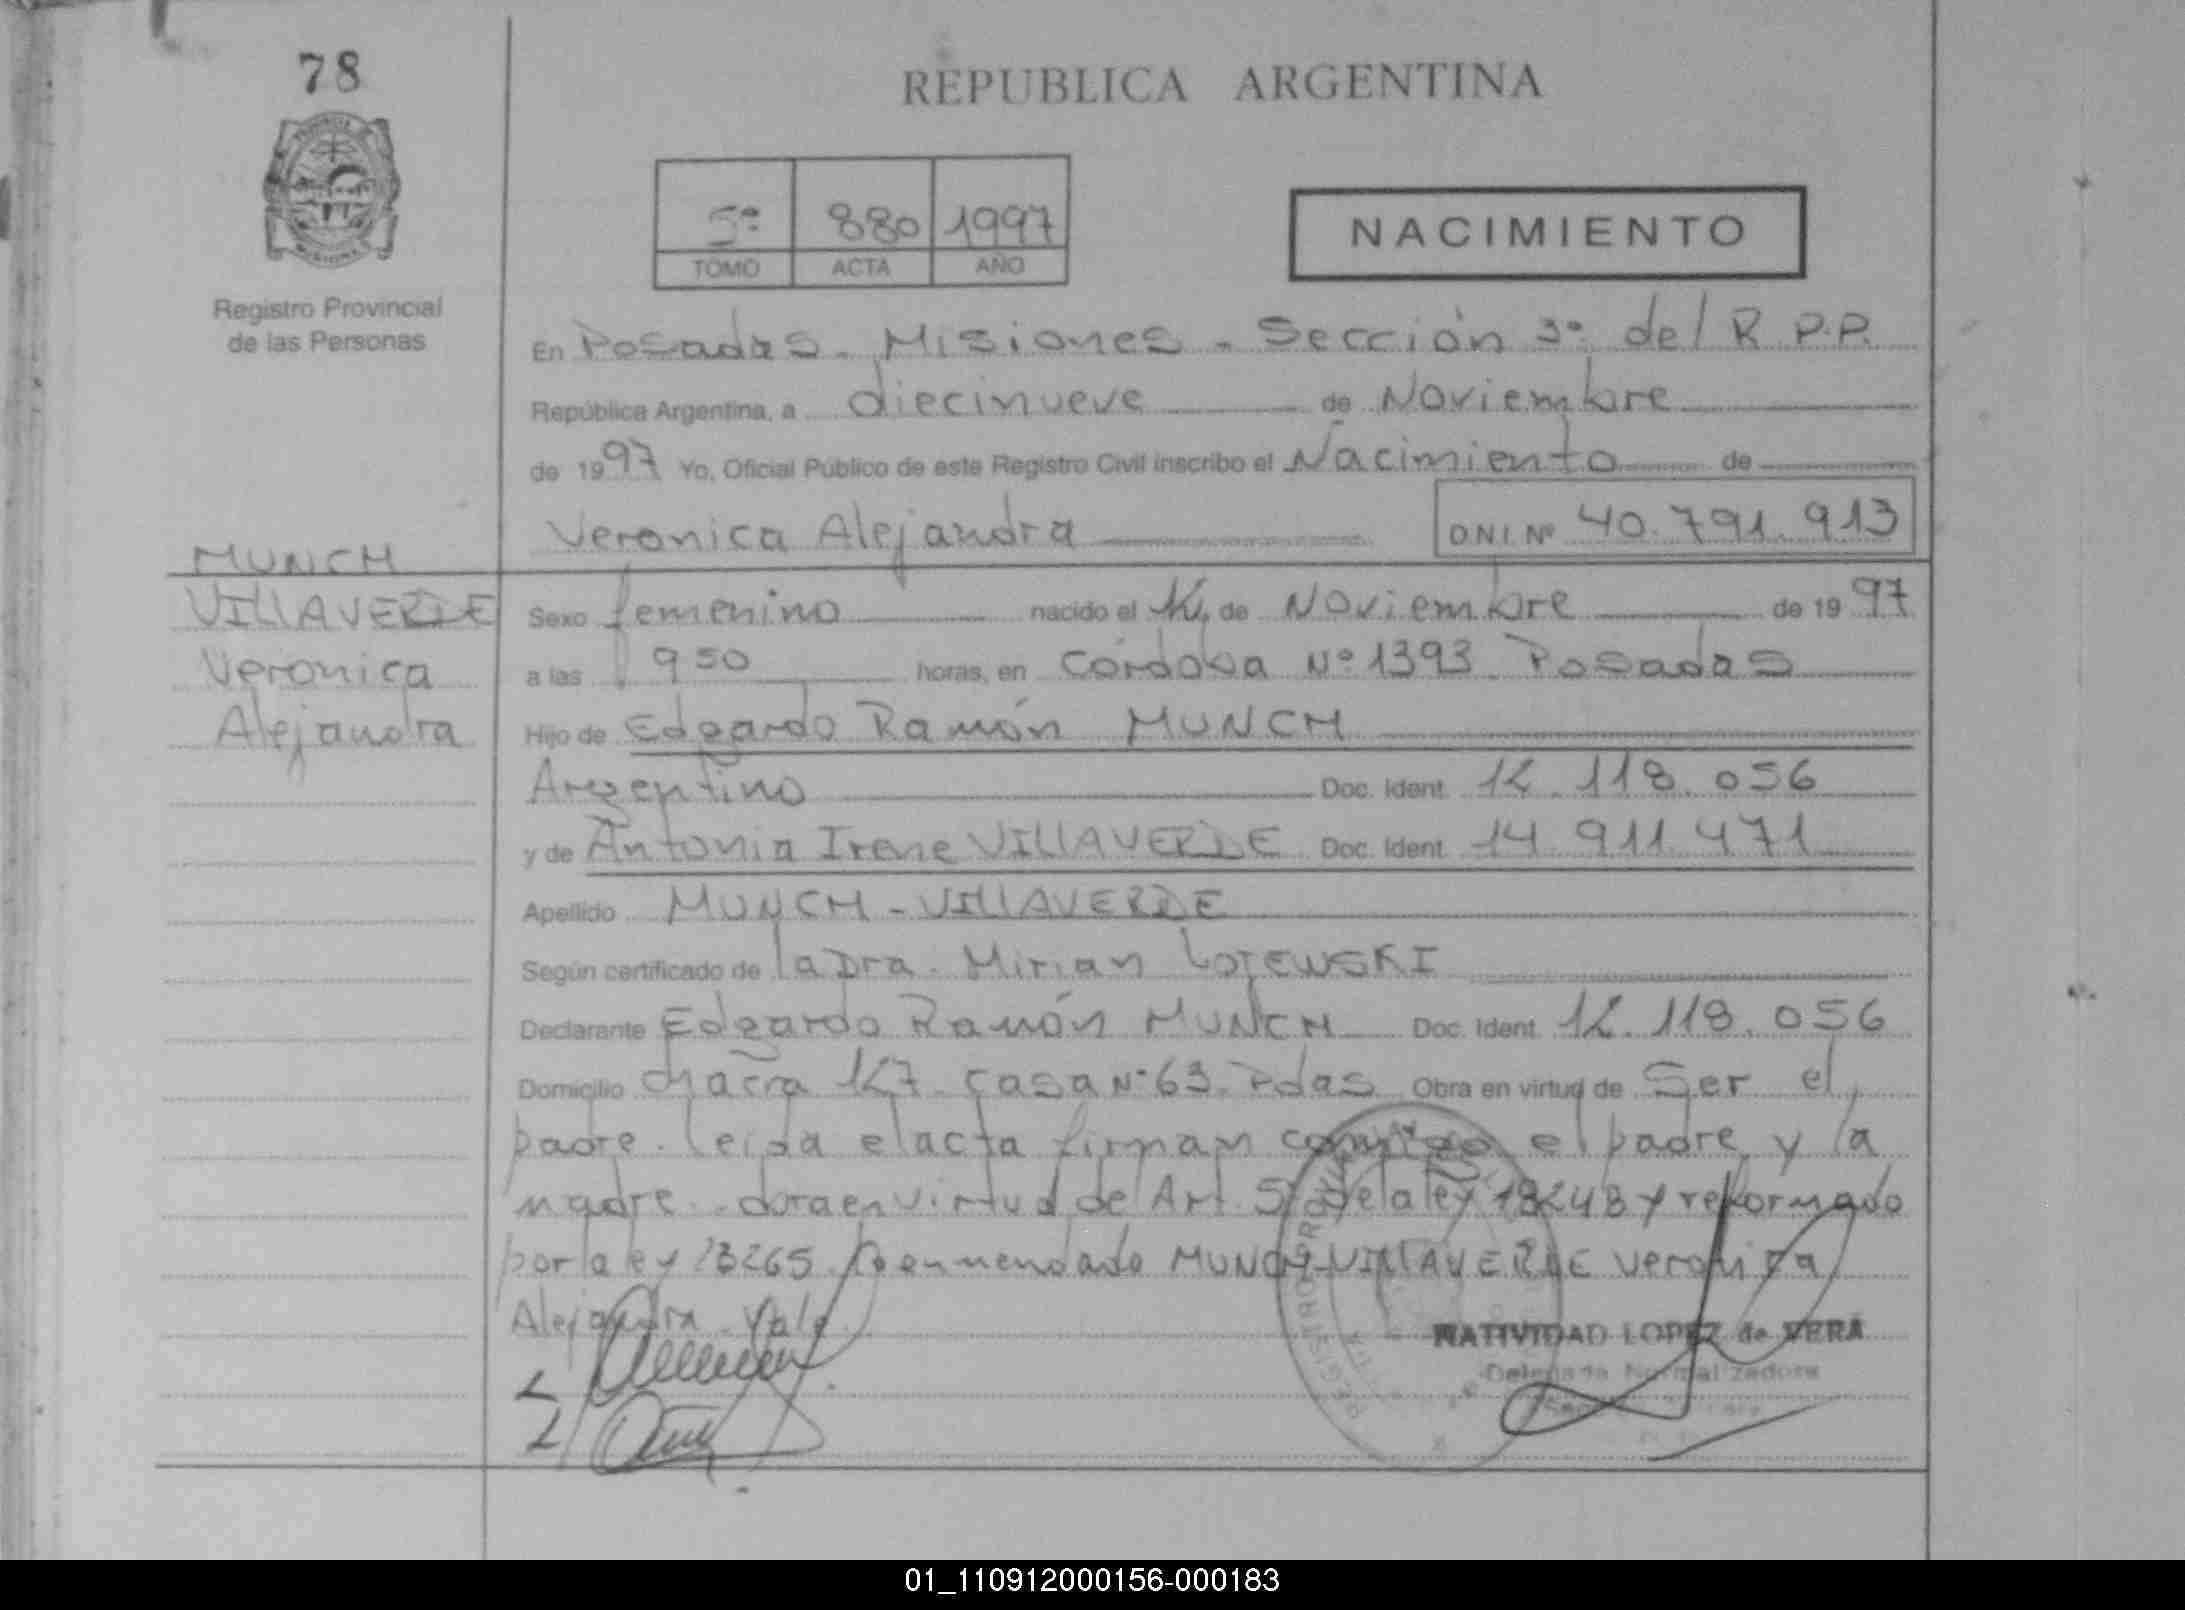 78
REPUBLICA ARGENTINA
5º 880 1997
TOMO ACTA AÑO
NACIMIENTO
Registro Provincial
de las Personas
En Posadas - Misiones - Sección 3º del R.P.P.
República Argentina, a diecinueve de Noviembre
de 1997 Yo, Oficial Público de este Registro Civil inscribo el Nacimiento de
Veronica Alejandra D.N.I. Nº 40.791.913
MUNCH
VILLAVERDE
Veronica
Alejandra
Sexo femenino nacido el de Noviembre de 1997
a las 9 50 horas, en Córdoba Nº 1393 Posadas
Hijo de Edgardo Ramón MUNCH
Argentino Doc. Ident. 12.118.056
y de Antonia Irene VILLAVERDE Doc. Ident. 14.911.471
Apellido MUNCH - VILLAVERDE
Según certificado de la Dra. Mirian
Declarante Edgardo Ramón MUNCH Doc. Ident. 12.118.056
Domicilio chacra 127 - casa Nº 63. Pdas Obra en virtud de Ser el
padre. leida el acta firman conmigo el padre y la
madre. - obra en virtud del Art. 5 de la ley 18248 y reformado
por la ley 23265 enmendado MUNCH-VILLAVERDE Veronica
Alejandra Vale
REGISTRO PROVINCIAL
NATIVIDAD LOPEZ de VERA
Delegada Normalizadora
01_110912000156-000183